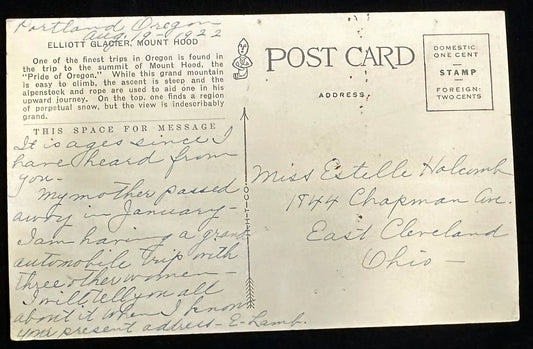 Portland Oregon
Aug. 19-1922
ELLIOTT GLACIER, MOUNT HOOD
One of the finest trips in Oregon is found in
the trip to the summit of Mount Hood, the
"Pride of Oregon." While this grand mountain
is easy to climb, the ascent is steep and the
alpenstock and rope are used to aid one in his
upward journey. On the top, one finds a region
of perpetual snow, but the view is indescribably
grand.
THIS SPACE FOR MESSAGE
It is ages since I
have heard from
you-
My mother passed
away in January-
I am having a grand
automobile trip with
three other women-
I will tell you all
about it when I know
your present address- E- Lamb.
POST CARD
ADDRESS
DOMESTIC
ONE CENT
STAMP
FOREIGN:
TWO CENTS
Miss Estelle Holcomb
1844 Chapman Ave.
East Cleveland
Ohio-